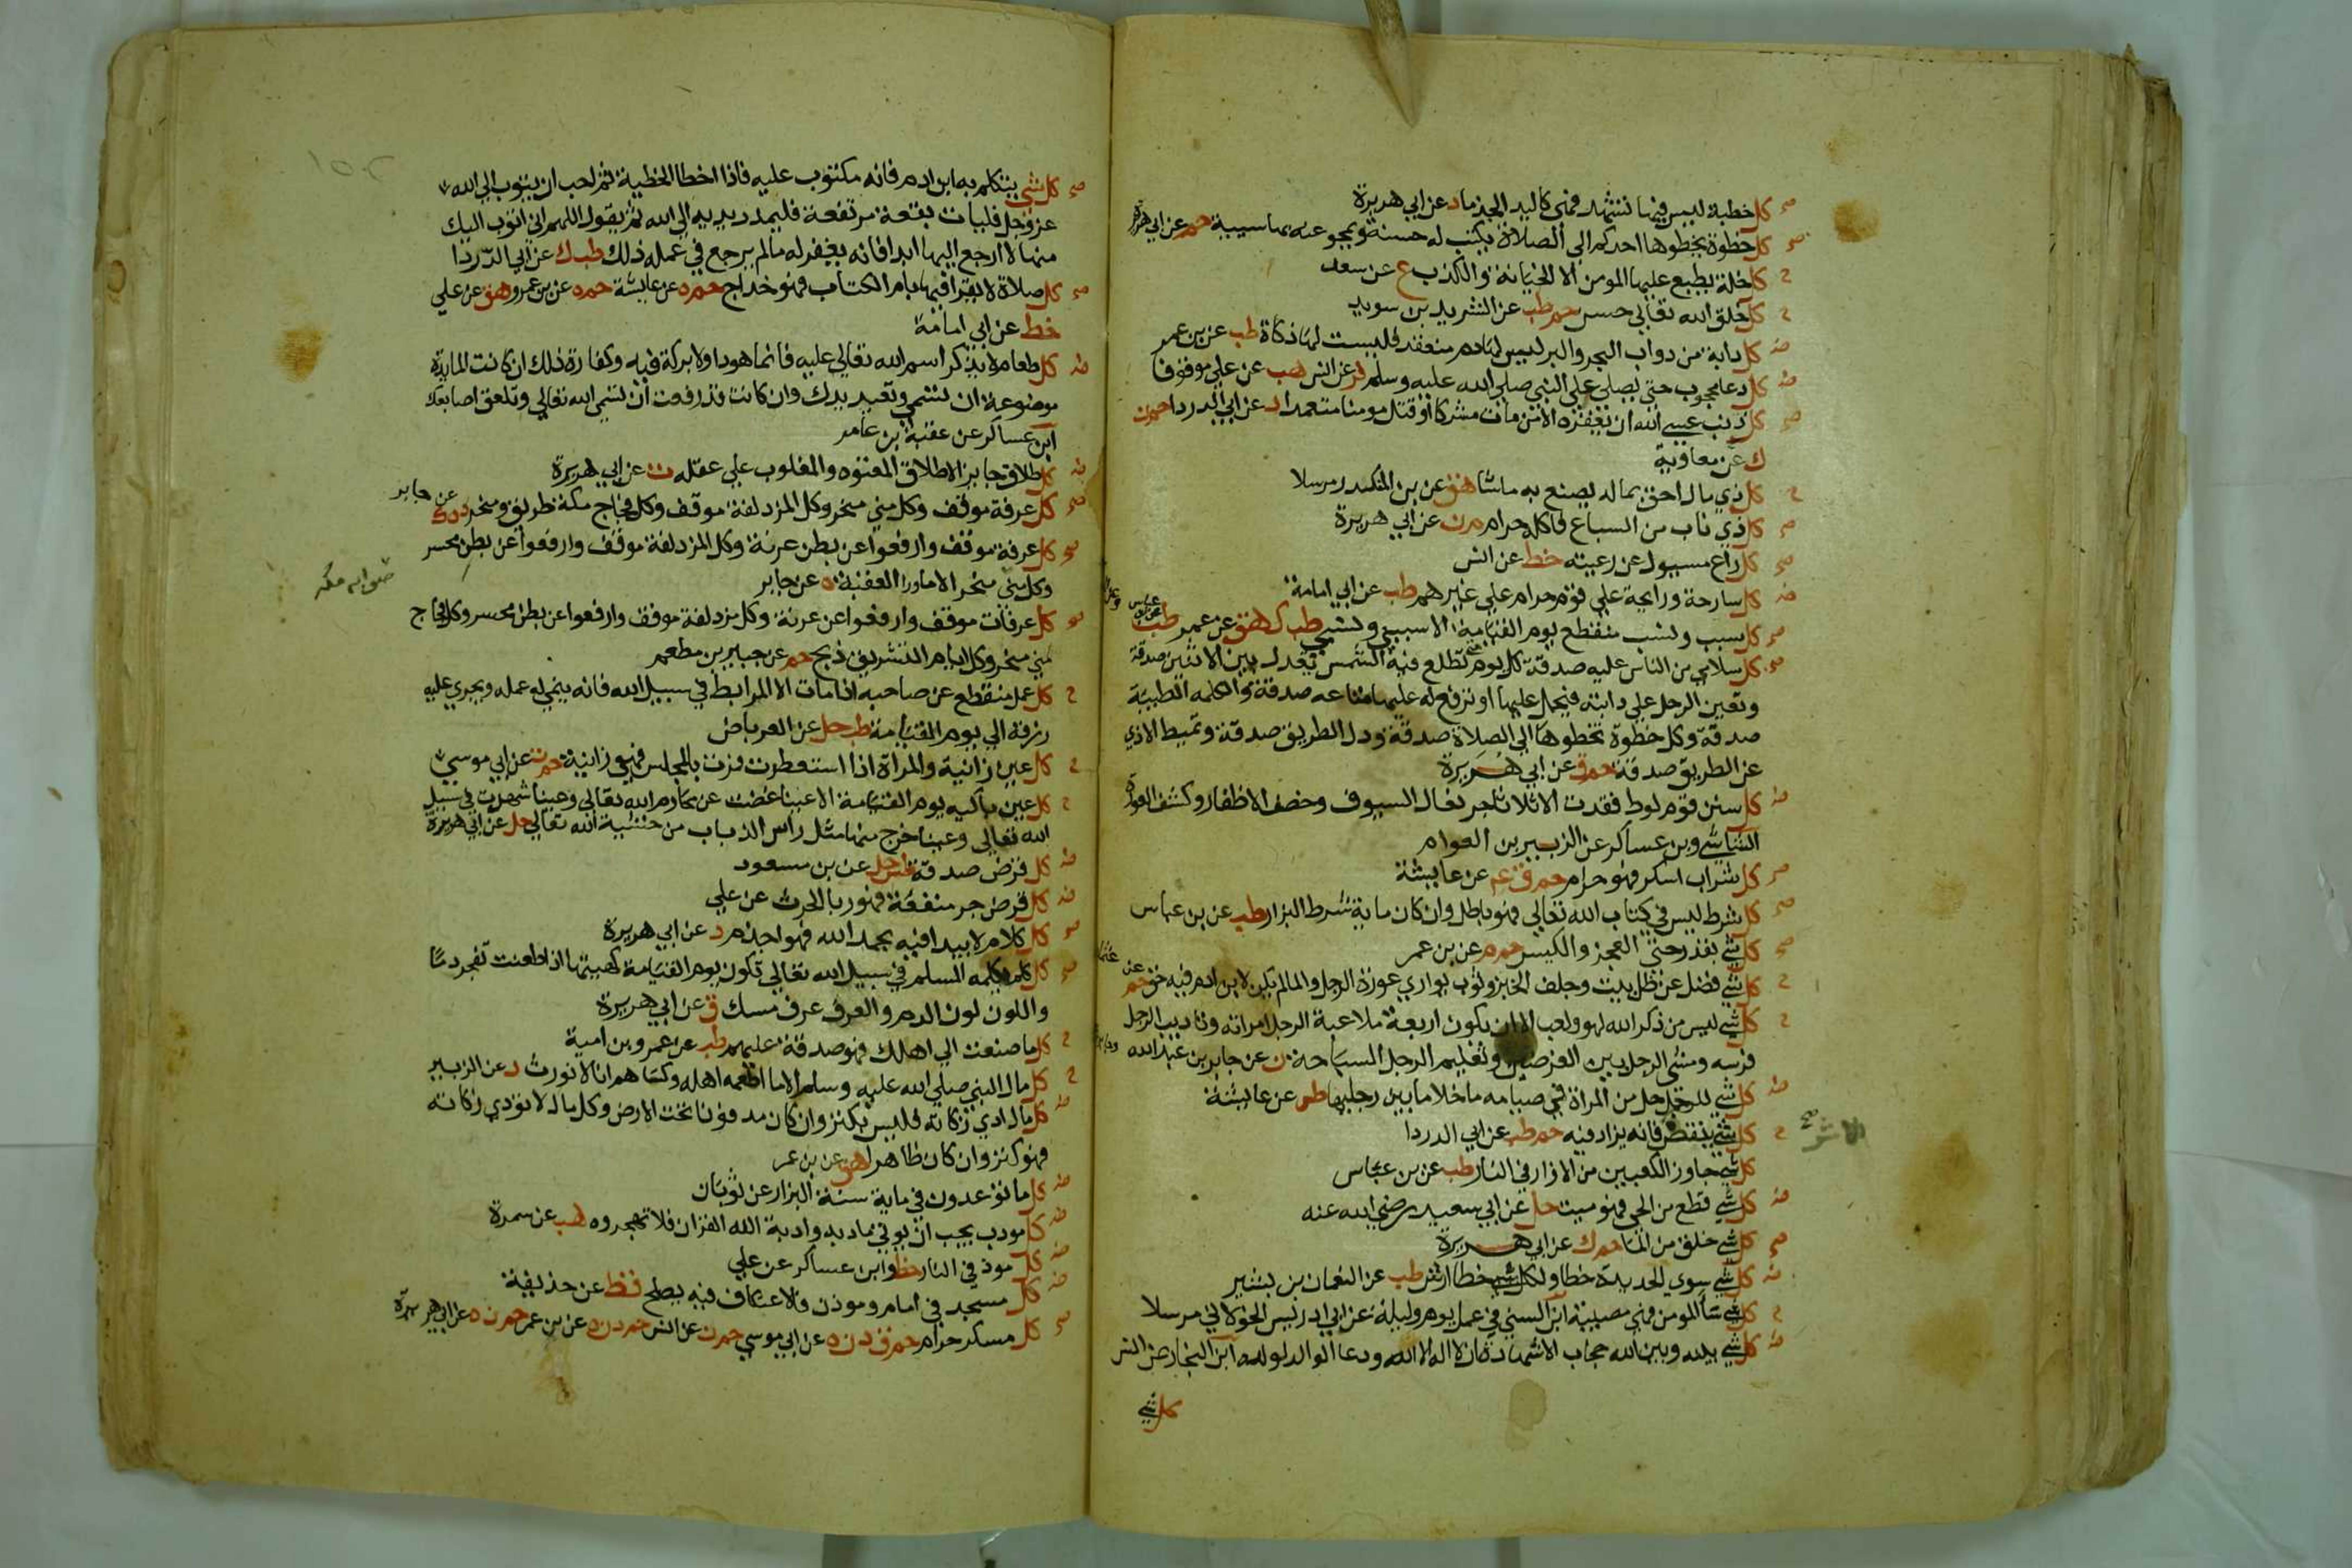 صح كل خطبة ليس فيها تشهد فهي كاليد الجذما د عن ابي هريرة
صح كل خطوة يخطوها احدكم الي الصلاة يكتب له حسنة ويمحو عنه بها سيية حم عن ابي هريرة
ح كل خلة يطبع عليها المومن الا الخيانة والكذب ع عن سعد
ح كل خلق الله تعالي حسن حم طب عن الشريد بن سويد
ضـ كل دابة من دواب البحر والبر ليس لها دم منعقد فليست لها ذكاة طب عن بن عمر
ضـ كل دعا محجوب حتي يصلي علي النبي صلي الله عليه وسلم فر عن انس هب عن علي موقوفا
صح كل ذنب عسي الله ان يغفره الا من مات مشركا او قتل مومنا متعمدا د عن ابي الدردا حم ن
ك عن معاوية
ح كل ذي مال احق بماله يصنع به ماشا هق عن بن المنكدر مرسلا
صح كل ذي ناب من السباع فاكله حرام م ن عن ابي هريرة
صح كل راع مسيول عن رعيته خط عن انس
ضـ كل سارحة ورايحة علي قوم حرام علي غيرهم طب عن ابي امامة
صح كل سبب ونسب منقطع يوم القيامة الا سببي ونسبي طب ك هق عن عمر طب
صح كل سلامي من الناس عليه صدقة كل يوم تطلع فيه الشمس تعدل بين الاثنين صدقة
وتعين الرجل علي دابته فيحمل عليها او ترفع له عليها متاعه صدقة والكلمه الطيبة
صدقة وكل خطوة تخطوها الي الصلاة صدقة ودل الطريق صدقة وتميط الاذي
عن الطريق صدقة حم ق عن ابي هريرة
ضـ كل سنن قوم لوط فقدت الا ثلاثا جر نعال السيوف وخضب الاظفار وكشف العورة
الشاشي وبن عساكر عن الزبير بن العوام
صح كل شراب اسكر فهو حرام حم ق عم عن عايشة
صح كل شرط ليس في كتاب الله تعالي فهو باطل وان كان ماية شرط البزار طب عن بن عباس
صح كل شي بقدر حتي العجز والكيس حم م عن بن عمر
ح كل شي فضل عن ظل بيت وجلف الخبز وثوب يواري عورة الرجل والما لم يكن لابن ادم فيه حق حم
ح كل شي ليس من ذكر الله لهو ولعب الا ان يكون اربعة ملاعبة الرجل امراته وتاديب الرجل
فرسه ومشي الرجل بين الغرضين وتعليم الرجل السباحة ن عن جابر بن عبد الله
ضـ كل شي للرجل حل من المراة في صيامه ما خلا ما بين رجليها طس عن عايشة
ح كل شي ينقص فانه يزاد فيه حم طب عن ابي الدردا
كل شي جاوز الكعبين من الازار في النار طب عن بن عباس
ضـ كل شي قطع من الحي فهو ميت حل عن ابي سعيد رضي الله عنه
صح كل شي خلق من الما حم ك عن ابي هريرة
ضـ كل شي سوي الحديدة خطا ولكل خطا ارش طب عن النعمان بن بشير
ح كل شي سا المومن فهي مصيبة ابن السني في عمل يوم وليلة عن ابي ادريس الخولاني مرسلا
ضـ كل شي بينه وبين الله حجاب الا شهادة ان لا اله الا الله ودعا الوالد لولده ابن النجار عن انس
كل شي
صح كل شي يتكلم به ابن ادم فانه مكتوب عليه فاذا اخطا الخطية ثم احب ان يتوب الي الله
عز وجل فليات بقعة مرتفعة فليمدد يديه الي الله ثم يقول اللهم اني اتوب اليك
منها لا ارجع اليها ابدا فانه يغفر له مالم يرجع في عمله ذلك طب ك عن ابي الدردا
صح كل صلاة لا يقرا فيها بام الكتاب فهو خداج حم ه عن عايشة حم ه عن بن عمرو هق عن علي
خط عن ابي امامة
ضـ كل طعام لا يذكر اسم الله تعالي عليه فانما هو دا ولا بركة فيه وكفارة ذلك ان كانت المايدة
موضوعة ان تسمي وتعيد يدك وان كانت قد رفعت ان تسمي الله تعالي وتلعق اصابعك
ابن عساكر عن عقبة بن عامر
ضـ كل طلاق جايز الا طلاق المعتوه والمغلوب علي عقله ت عن ابي هريرة
صح كل عرفة موقف وكل مني منحر وكل المزدلفة موقف وكل فجاج مكة طريق ومنحر د ه ك عن جابر
صح كل عرفة موقف وارفعوا عن بطن عرنة وكل المزدلفة موقف وارفعوا عن بطن محسر
وكل مني منحر الا ماورا العقبة ه عن جابر
صح كل عرفات موقف وارفعوا عن عرنة وكل مزدلفة موقف وارفعوا عن بطن محسر وكل فجاج
مني منحر وكل ايام التشريق ذبح حم عن جبير بن مطعم
ح كل عمل منقطع عن صاحبه اذا مات الا المرابط في سبيل الله فانه ينمي له عمله ويجري عليه
رزقه الي يوم القيامة طب حل عن العرباض
ح كل عين زانية والمراة اذا استعطرت فمرت بالمجلس فهي زانية حم ت عن ابي موسي
ح كل عين باكيه يوم القيامة الا عينا غضت عن محارم الله تعالي وعينا سهرت في سبيل
الله تعالي وعينا خرج منها مثل راس الذباب من خشية الله تعالي حل عن ابي هريرة
ضـ كل قرض صدقة طس حل عن بن مسعود
ضـ كل قرض جر منفعة فهو ربا الحرث عن علي
صح كل كلام لا يبدا فيه بحمد الله فهو اجذم د عن ابي هريرة
صح كل كلم يكلمه المسلم في سبيل الله تعالي تكون يوم القيامة كهييتها اذا طعنت تفجر دما
واللون لون الدم والعرف عرف مسك ق عن ابي هريرة
ح كل ما صنعت الي اهلك فهو صدقة عليهم طب عن عمرو بن امية
ح كل مال النبي صلي الله عليه وسلم الا ما اطعمه اهله وكساهم انا لا نورث د عن الزبير
ضـ كل مال ادي زكاته فليس بكنز وان كان مدفونا تحت الارض وكل مال لا تودي زكاته
فهو كنز وان كان ظاهرا هق عن بن عمر
ضـ كل ما توعدون في ماية سنة البزار عن ثوبان
ضـ كل مودب يحب ان يوتي مادبه وادبة الله القران فلا تهجروه هب عن سمرة
ضـ كل موذ في النار خط وابن عساكر عن علي
ضـ كل مسجد في امام وموذن فالاعتكاف فيه يصلح قط عن حذيفة
صح كل مسكر حرام حم ق د ن ه عن ابي موسي حم ن عن انس حم د ن ه عن بن عمر حم ن ه عن ابي هريرة